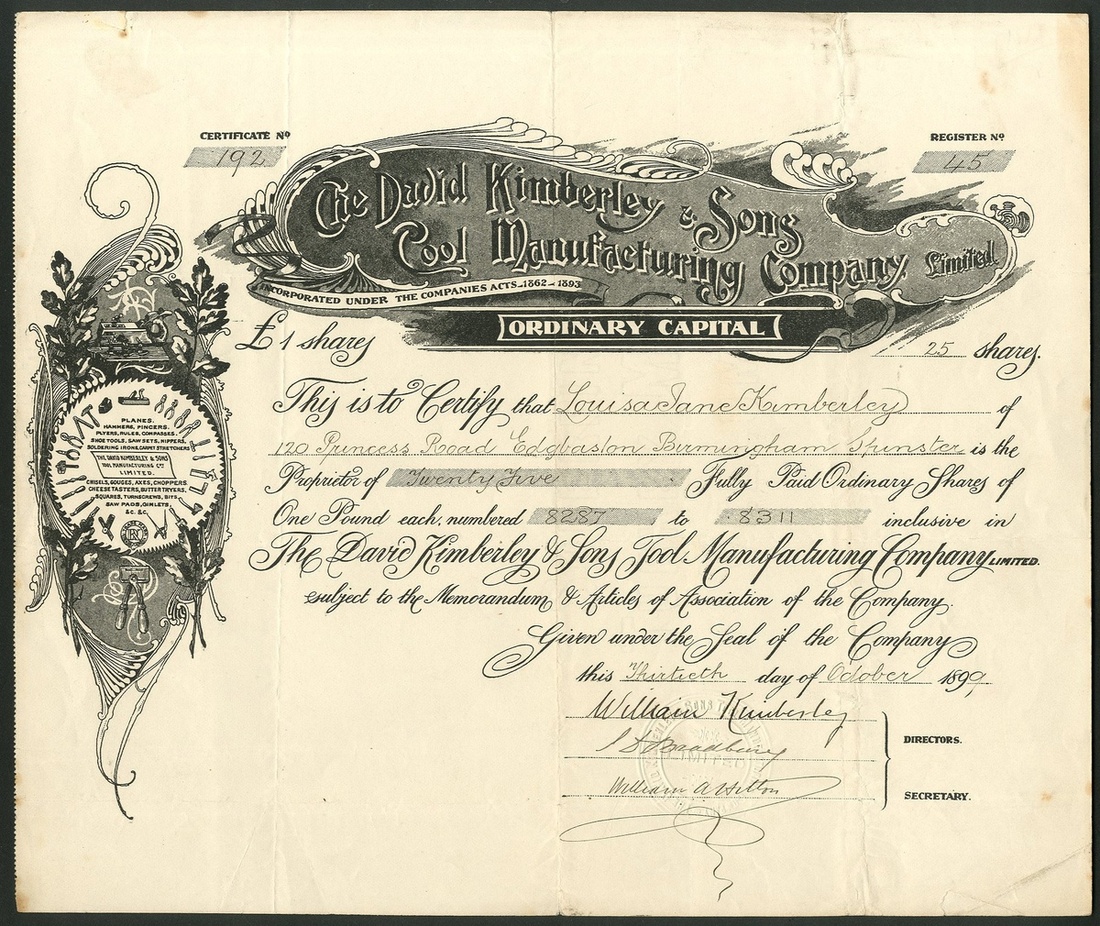 CERTIFICATE Nº
192
REGISTER Nº
45
The David Kimberley & Sons
Tool Manufacturing Company, Limited.
INCORPORATED UNDER THE COMPANIES ACTS_1862_1893
ORDINARY CAPITAL
£1 shares
25 shares.
This is to Certify that Louisa Jane Kimberley of
120 Princess Road Edgbaston Birmingham Spinster is the
Proprietor of Twenty Five Fully Paid Ordinary Shares of
One Pound each, numbered 8287 to 8311 inclusive in
The David Kimberley & Sons Tool Manufacturing Company LIMITED.
subject to the Memorandum & Articles of Association of the Company.
Given under the Seal of the Company
this Thirtieth day of October 1899
William Kimberley
Bradbury
DIRECTORS.
William A Hilton
SECRETARY.
PLANES.
HAMMERS, PINCERS.
PLYERS, RULES, COMPASSES.
SHOE TOOLS, SAW SETS, NIPPERS.
SOLDERING IRONS, CARPET STRETCHERS
THE DAVID KIMBERLEY & SONS
TOOL MANUFACTURING Cº
LIMITED.
CHISELS, GOUGES, AXES, CHOPPERS
CHEESE TASTERS, BUTTER TRYERS,
SQUARES, TURNSCREWS, BITS,
SAW PADS, GIMLETS,
&C. &C.
LIMITED